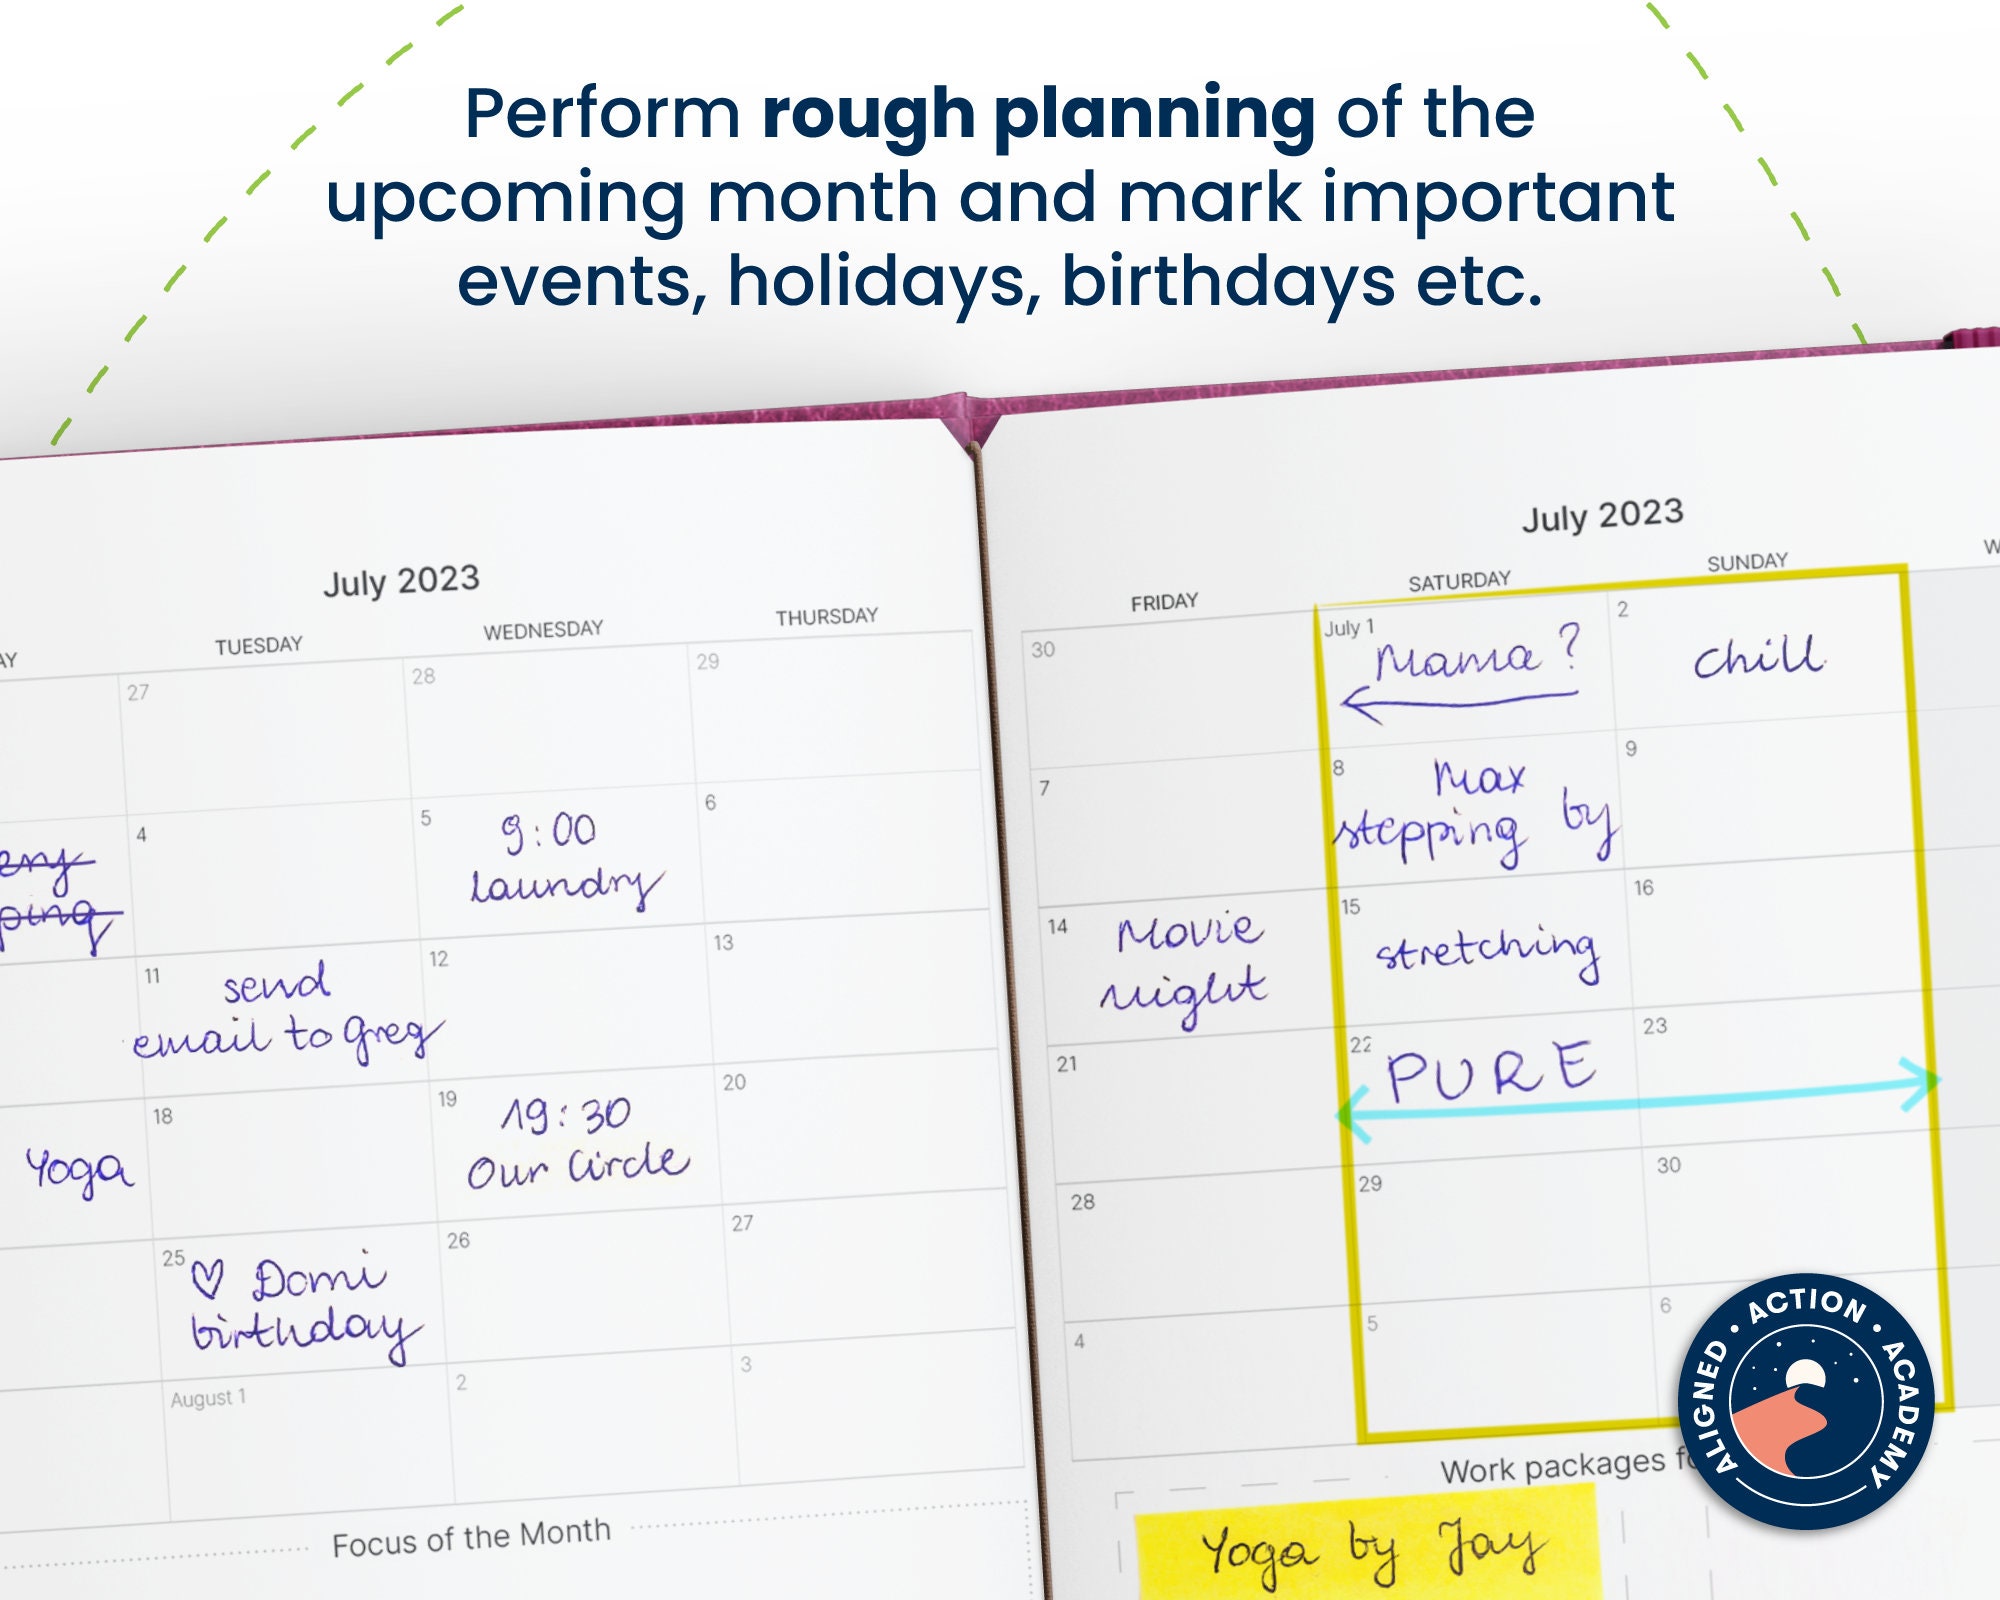 Perform rough planning of the
upcoming month and mark important
events, holidays, birthdays etc.
July 2023
TUESDAY WEDNESDAY THURSDAY
27 28 29
4 5 9:00 6
laundry
11 send 12 13
email to Greg
18 19 19:30 20
Yoga Our Circle
25 ♡ Domi 26 27
birthday
August 1 2 3
Focus of the Month
July 2023
FRIDAY SATURDAY SUNDAY
30 July 1 Mama? 2 chill
7 8 Max 9
stepping by
14 Movie 15 stretching 16
night
21 22 PURE 23
28 29 30
4 5 6
Work packages
Yoga by Jay
ALIGNED • ACTION • ACADEMY